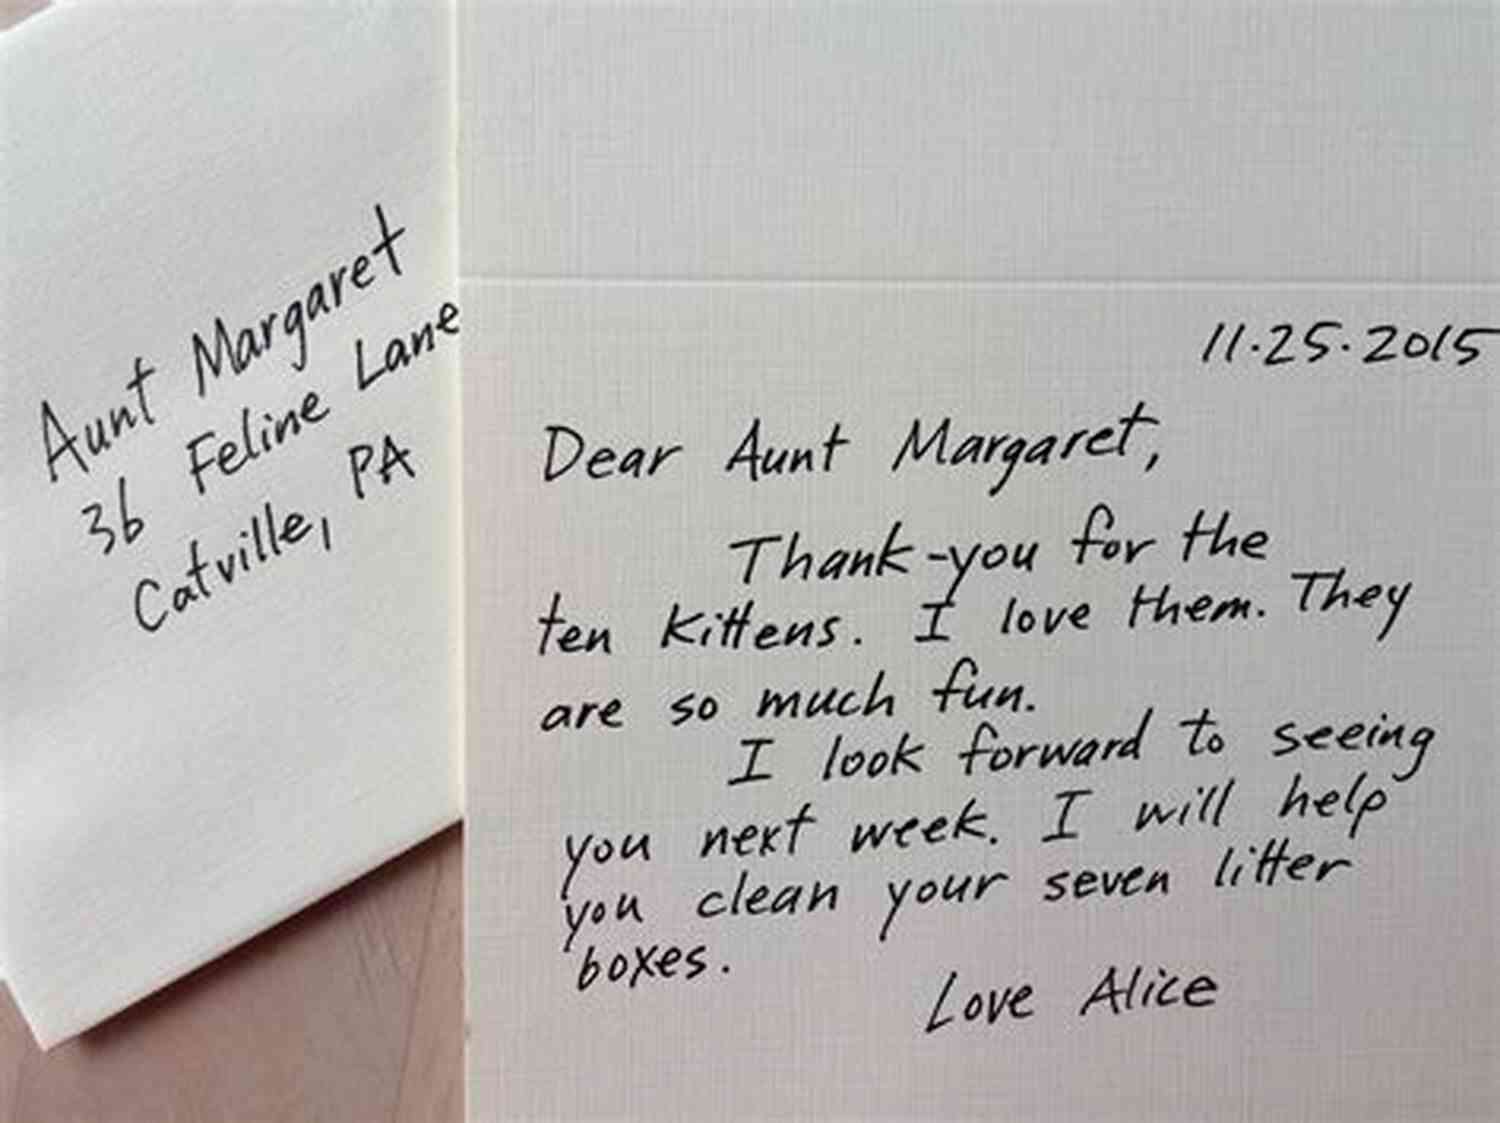 Aunt Margaret
36 Feline Lane
Catville, PA
11.25.2015
Dear Aunt Margaret,
Thank-you for the
ten kittens. I love them. They
are so much fun.
I look forward to seeing
you next week. I will help
you clean your seven litter
boxes.
Love Alice